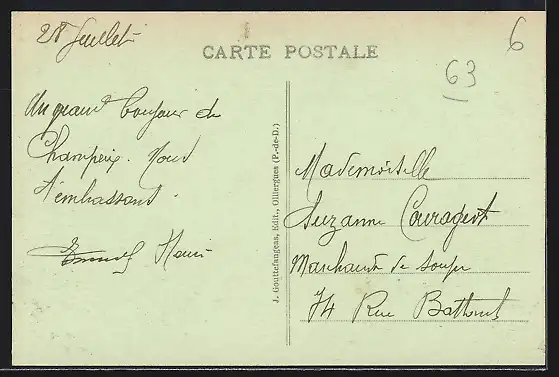 28 Juillet
CARTE POSTALE
6
63
Un grand bonjour de
Champeix. Nous
t'embrassons.
Henri
J. Gouttefangeas, Édit., Olliergues (P.-de-D.)
Mademoiselle
Suzanne Courageot
Marchande de soupe
74 Rue